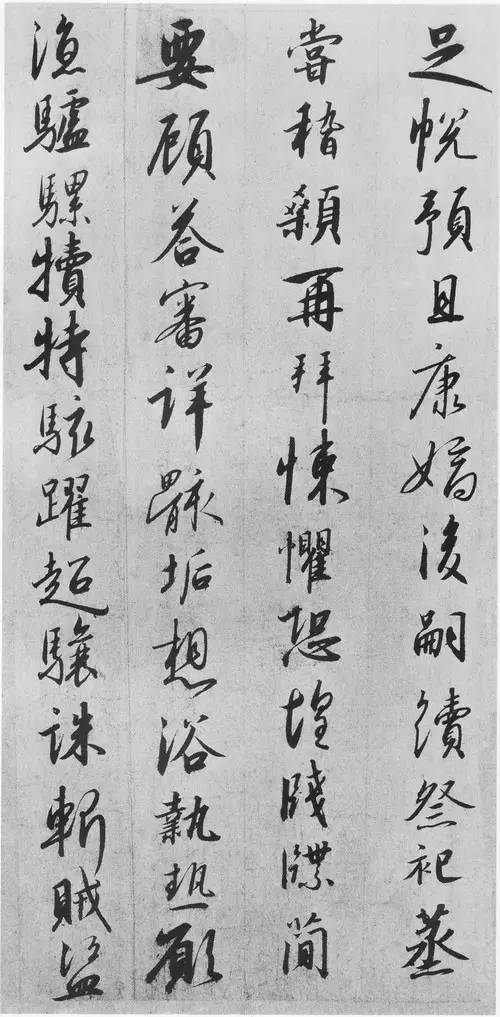 足悅預且康嫡後嗣續祭祀蒸
嘗稽顙再拜悚懼恐惶牋牒簡
要顧荅審詳骸垢想浴執熱願
涼驢騾犢特駭躍超驤誅斬賊盜